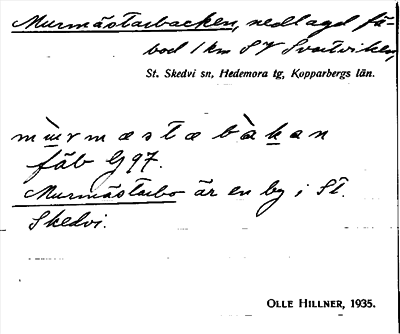 Murmästarbacken, nedlagd fä-
bod 1 km SV Svartviken,
St. Skedvi sn, Hedemora tg, Kopparbergs län.
mùrmæstæbàkan
fäb G97.
Murmästarbo är en by i St.
Skedvi.
OLLE HILLNER, 1935.